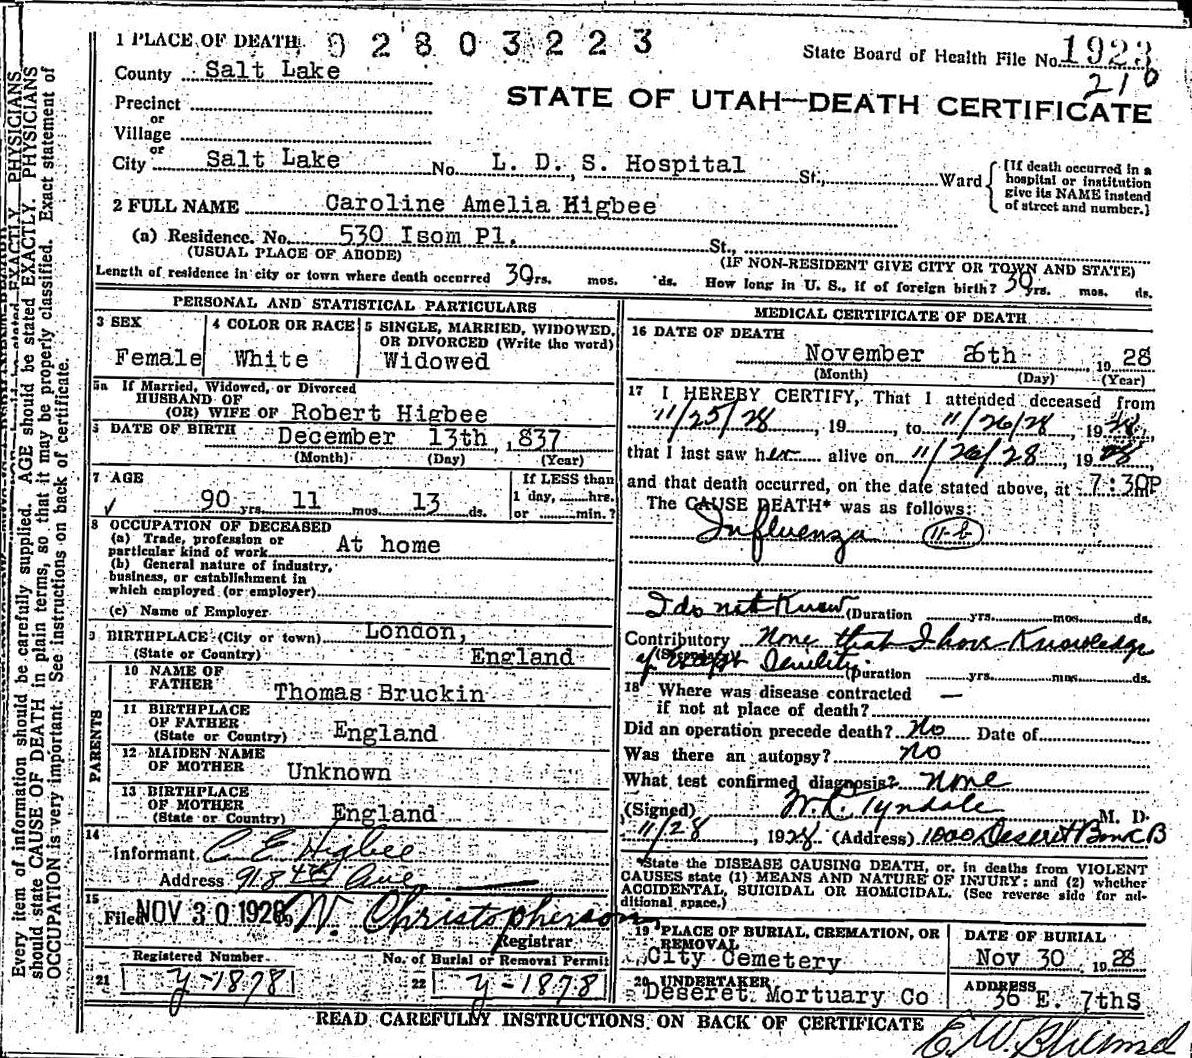 1 PLACE OF DEATH 0 2 8 0 3 2 2 3
State Board of Health File No. 1923
216
County Salt Lake
STATE OF UTAH—DEATH CERTIFICATE
Precinct
or
Village
or
City Salt Lake No. L. D. S. Hospital St., Ward
[If death occurred in a hospital or institution give its NAME instead of street and number.]
2 FULL NAME Caroline Amelia Higbee
(a) Residence. No. 530 Isom Pl. St.,
(USUAL PLACE OF ABODE) (IF NON-RESIDENT GIVE CITY OR TOWN AND STATE)
Length of residence in city or town where death occurred 30 yrs. mos. ds. How long in U. S., if of foreign birth? 30 yrs. mos. ds.
PERSONAL AND STATISTICAL PARTICULARS
3 SEX
Female
4 COLOR OR RACE
White
5 SINGLE, MARRIED, WIDOWED, OR DIVORCED (Write the word)
Widowed
5a If Married, Widowed, or Divorced
HUSBAND OF
(OR) WIFE OF Robert Higbee
6 DATE OF BIRTH December 13th ,837
(Month) (Day) (Year)
7 AGE
90 yrs. 11 mos. 13 ds.
If LESS than
1 day, hrs.
or min.?
8 OCCUPATION OF DECEASED
(a) Trade, profession or
particular kind of work At home
(b) General nature of industry,
business, or establishment in
which employed (or employer)
(c) Name of Employer
9 BIRTHPLACE (City or town) London,
(State or Country) England
PARENTS
10 NAME OF
FATHER Thomas Bruckin
11 BIRTHPLACE
OF FATHER
(State or Country) England
12 MAIDEN NAME
OF MOTHER Unknown
13 BIRTHPLACE
OF MOTHER
(State or Country) England
14
Informant C E Higbee
Address 918 4th Ave
15
Filed NOV 30 1928 W. Christopherson
Registrar
Registered Number
21 y-1878
No. of Burial or Removal Permit
22 y-1878
MEDICAL CERTIFICATE OF DEATH
16 DATE OF DEATH
November 26th, 19 28
(Month) (Day) (Year)
17 I HEREBY CERTIFY, That I attended deceased from
11/25/28, 19, to 11/26/28, 19 28,
that I last saw her alive on 11/26/28, 19 28,
and that death occurred, on the date stated above, at 7:30P m.
The CAUSE DEATH* was as follows:
Influenza 11-b
I do not Know (Duration yrs. mos. ds.
Contributory None that I have Knowledge
(Secondary)
of except Senility (Duration yrs. mos. ds.
18 Where was disease contracted
if not at place of death? —
Did an operation precede death? No Date of
Was there an autopsy? No
What test confirmed diagnosis? none
(Signed) W. R. Tyndale M. D.
11/28, 1928 (Address) 1000 Deseret Bank B
*State the DISEASE CAUSING DEATH, or, in deaths from VIOLENT
CAUSES state (1) MEANS AND NATURE OF INJURY; and (2) whether
ACCIDENTAL, SUICIDAL OR HOMICIDAL. (See reverse side for additional space.)
19 PLACE OF BURIAL, CREMATION, OR REMOVAL
City Cemetery
DATE OF BURIAL
Nov 30 19 28
20 UNDERTAKER
Deseret Mortuary Co
ADDRESS
36 E. 7thS
READ CAREFULLY INSTRUCTIONS ON BACK OF CERTIFICATE
Every item of information should be carefully supplied. AGE should be stated EXACTLY. PHYSICIANS
should state CAUSE OF DEATH in plain terms, so that it may be properly classified. Exact statement of
OCCUPATION is very important. See instructions on back of certificate.